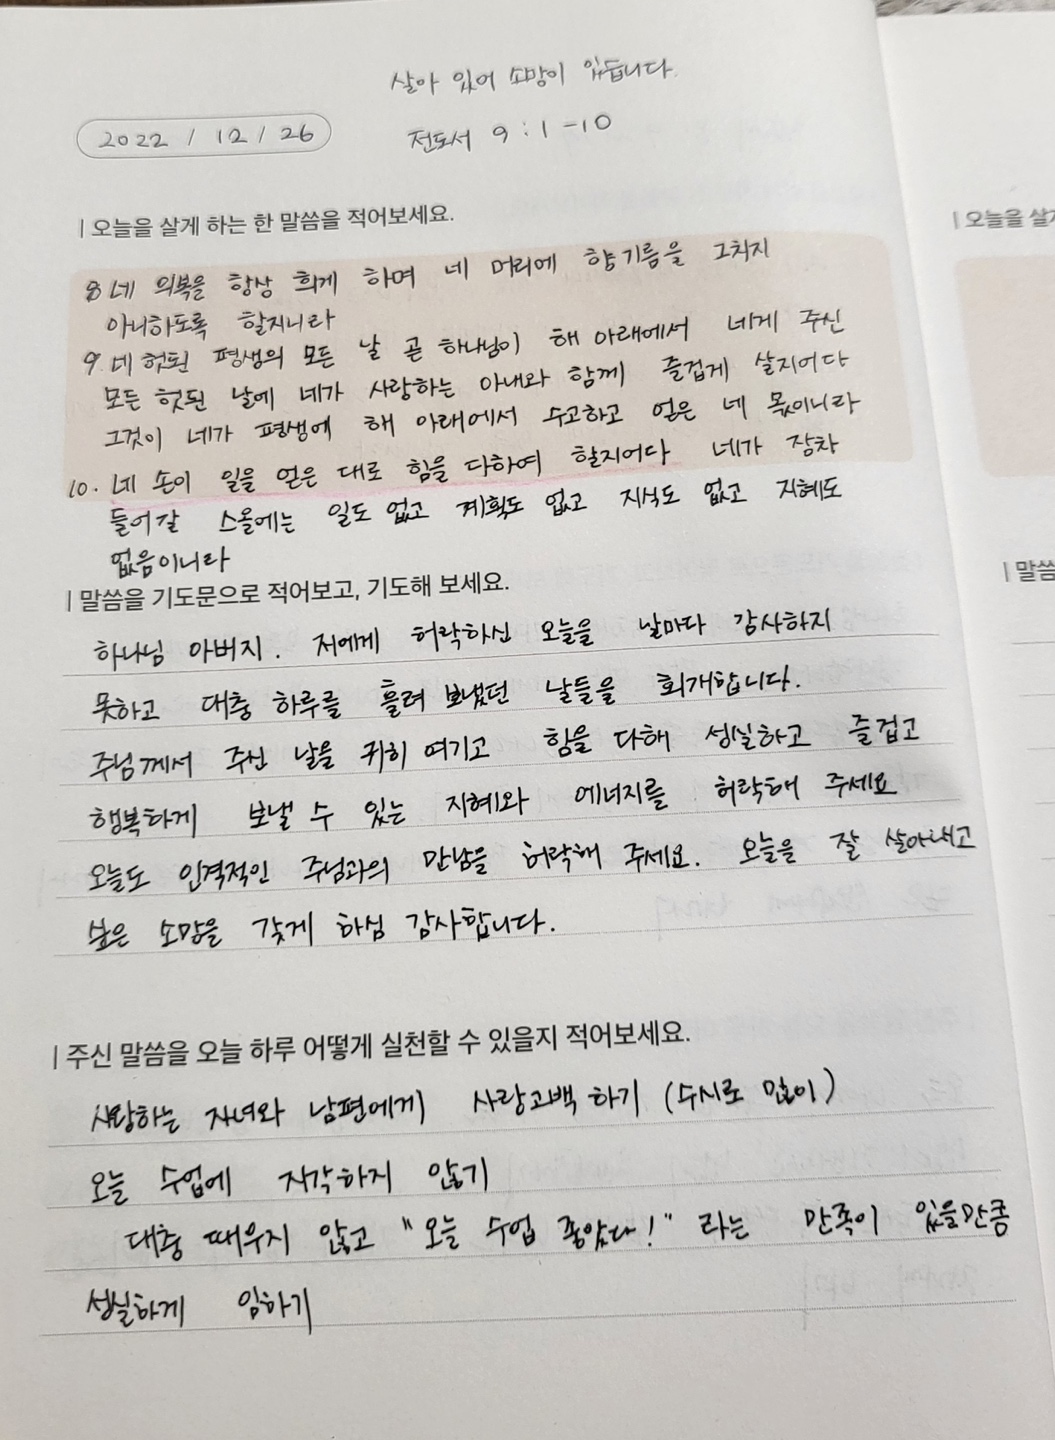 살아 있어 소망이 있습니다.
2022 / 12 / 26
전도서 9 : 1 - 10
| 오늘을 살게 하는 한 말씀을 적어보세요.
8 네 의복을 항상 희게 하며 네 머리에 향기름을 그치지
아니하도록 할지니라
9. 네 헛된 평생의 모든 날 곧 하나님이 해 아래에서 네게 주신
모든 헛된 날에 네가 사랑하는 아내와 함께 즐겁게 살지어다
그것이 네가 평생에 해 아래에서 수고하고 얻은 네 몫이니라
10. 네 손이 일을 얻은 대로 힘을 다하여 할지어다 네가 장차
들어갈 스올에는 일도 없고 계획도 없고 지식도 없고 지혜도
없음이니라
| 말씀을 기도문으로 적어보고, 기도해 보세요.
하나님 아버지. 저에게 허락하신 오늘을 날마다 감사하지
못하고 대충 하루를 흘려 보냈던 날들을 회개합니다.
주님께서 주신 날을 귀히 여기고 힘을 다해 성실하고 즐겁고
행복하게 보낼 수 있는 지혜와 에너지를 허락해 주세요
오늘도 인격적인 주님과의 만남을 허락해 주세요. 오늘을 잘 살아내고
싶은 소망을 갖게 하심 감사합니다.
| 주신 말씀을 오늘 하루 어떻게 실천할 수 있을지 적어보세요.
사랑하는 자녀와 남편에게 사랑고백 하기 (수시로 많이)
오늘 수업에 지각하지 않기
대충 때우지 않고 "오늘 수업 좋았다!" 라는 만족이 있을만큼
성실하게 임하기
| 오늘을 살게
| 말씀